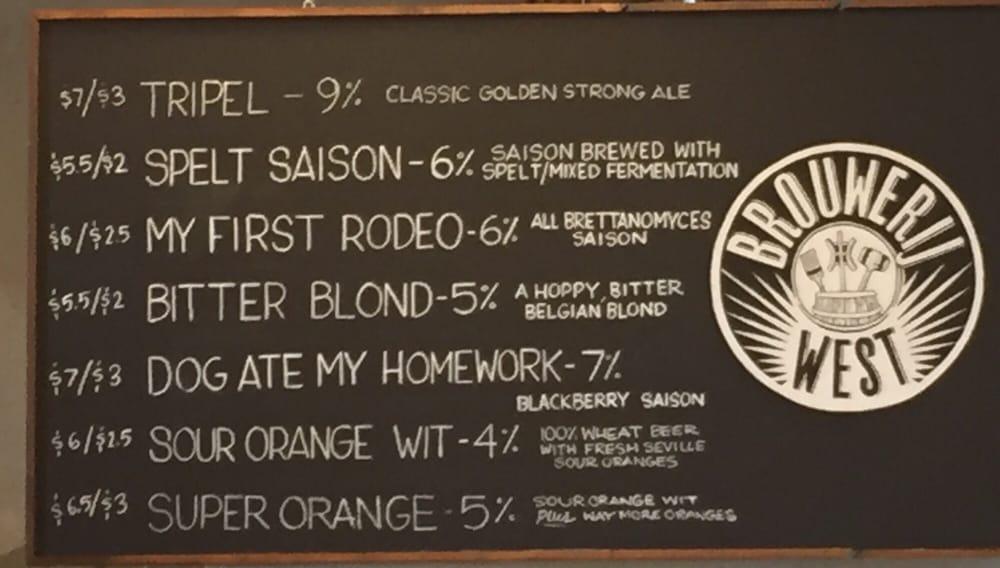 $7/$3 TRIPEL - 9% CLASSIC GOLDEN STRONG ALE
$5.5/$2 SPELT SAISON - 6% SAISON BREWED WITH
SPELT/MIXED FERMENTATION
$6/$2.5 MY FIRST RODEO - 6% ALL BRETTANOMYCES
SAISON
$5.5/$2 BITTER BLOND - 5% A HOPPY, BITTER
BELGIAN BLOND
$7/$3 DOG ATE MY HOMEWORK - 7%
BLACKBERRY SAISON
$6/$2.5 SOUR ORANGE WIT - 4% 100% WHEAT BEER
WITH FRESH SEVILLE
SOUR ORANGES
$6.5/$3 SUPER ORANGE - 5% SOUR ORANGE WIT
PLUS WAY MORE ORANGES
BROUWERIJ
WEST